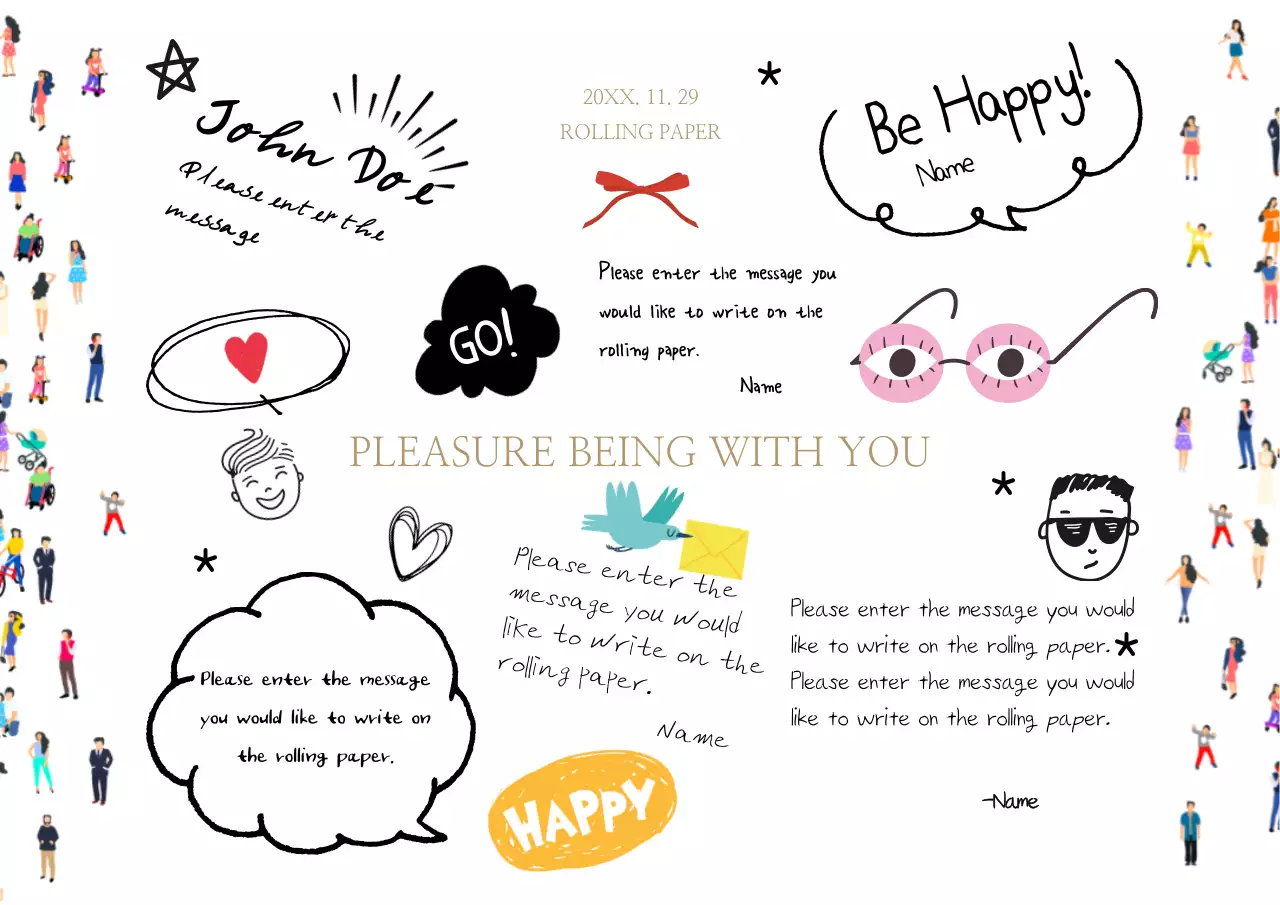 20XX. 11. 29
ROLLING PAPER
John Doe
Please enter the
message
Be Happy!
Name
GO!
Please enter the message you
would like to write on the
rolling paper.
Name
PLEASURE BEING WITH YOU
Please enter the message
you would like to write on
the rolling paper.
Please enter the
message you would
like to write on the
rolling paper.
Name
Please enter the message you would
like to write on the rolling paper.
Please enter the message you would
like to write on the rolling paper.
-Name
HAPPY